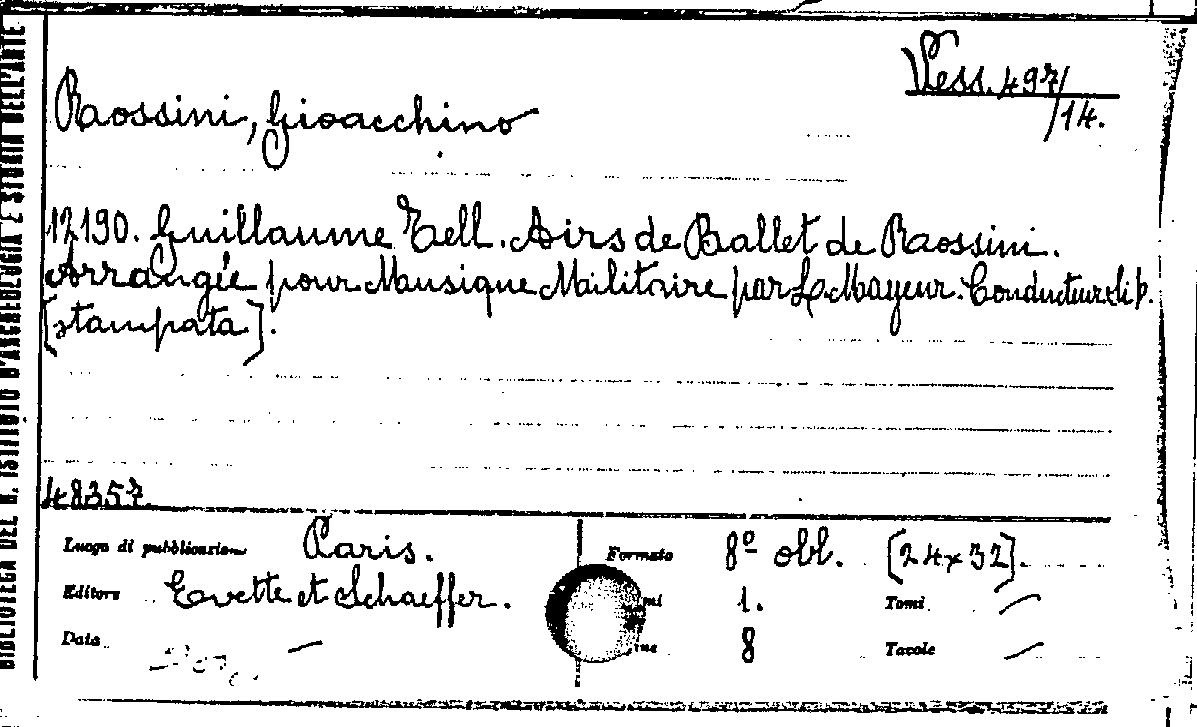 BIBLIOTECA DEL R. ISTITUTO D'ARCHEOLOGIA E STORIA DELL'ARTE
Vess. 497/
/14.
Rossini, Gioacchino
12190. Guillaume Tell. Airs de Ballet de Rossini.
Arrangée pour Musique Militaire par L. Mayeur. Conducteur si b.
[stampata].
48357.
Luogo di pubblicazione Paris. Formato 8º obl. [24x32].
Editore Evette et Schaeffer. 1. Tomi —
Data — 8 Tavole —